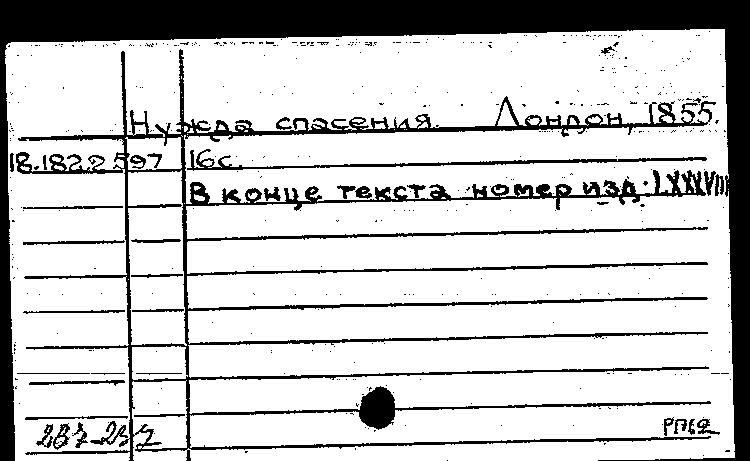 Нужда спасения. Лондон, 1855.
18.182.2.597 16с.
В конце текста номер изд.: LXXXVIII